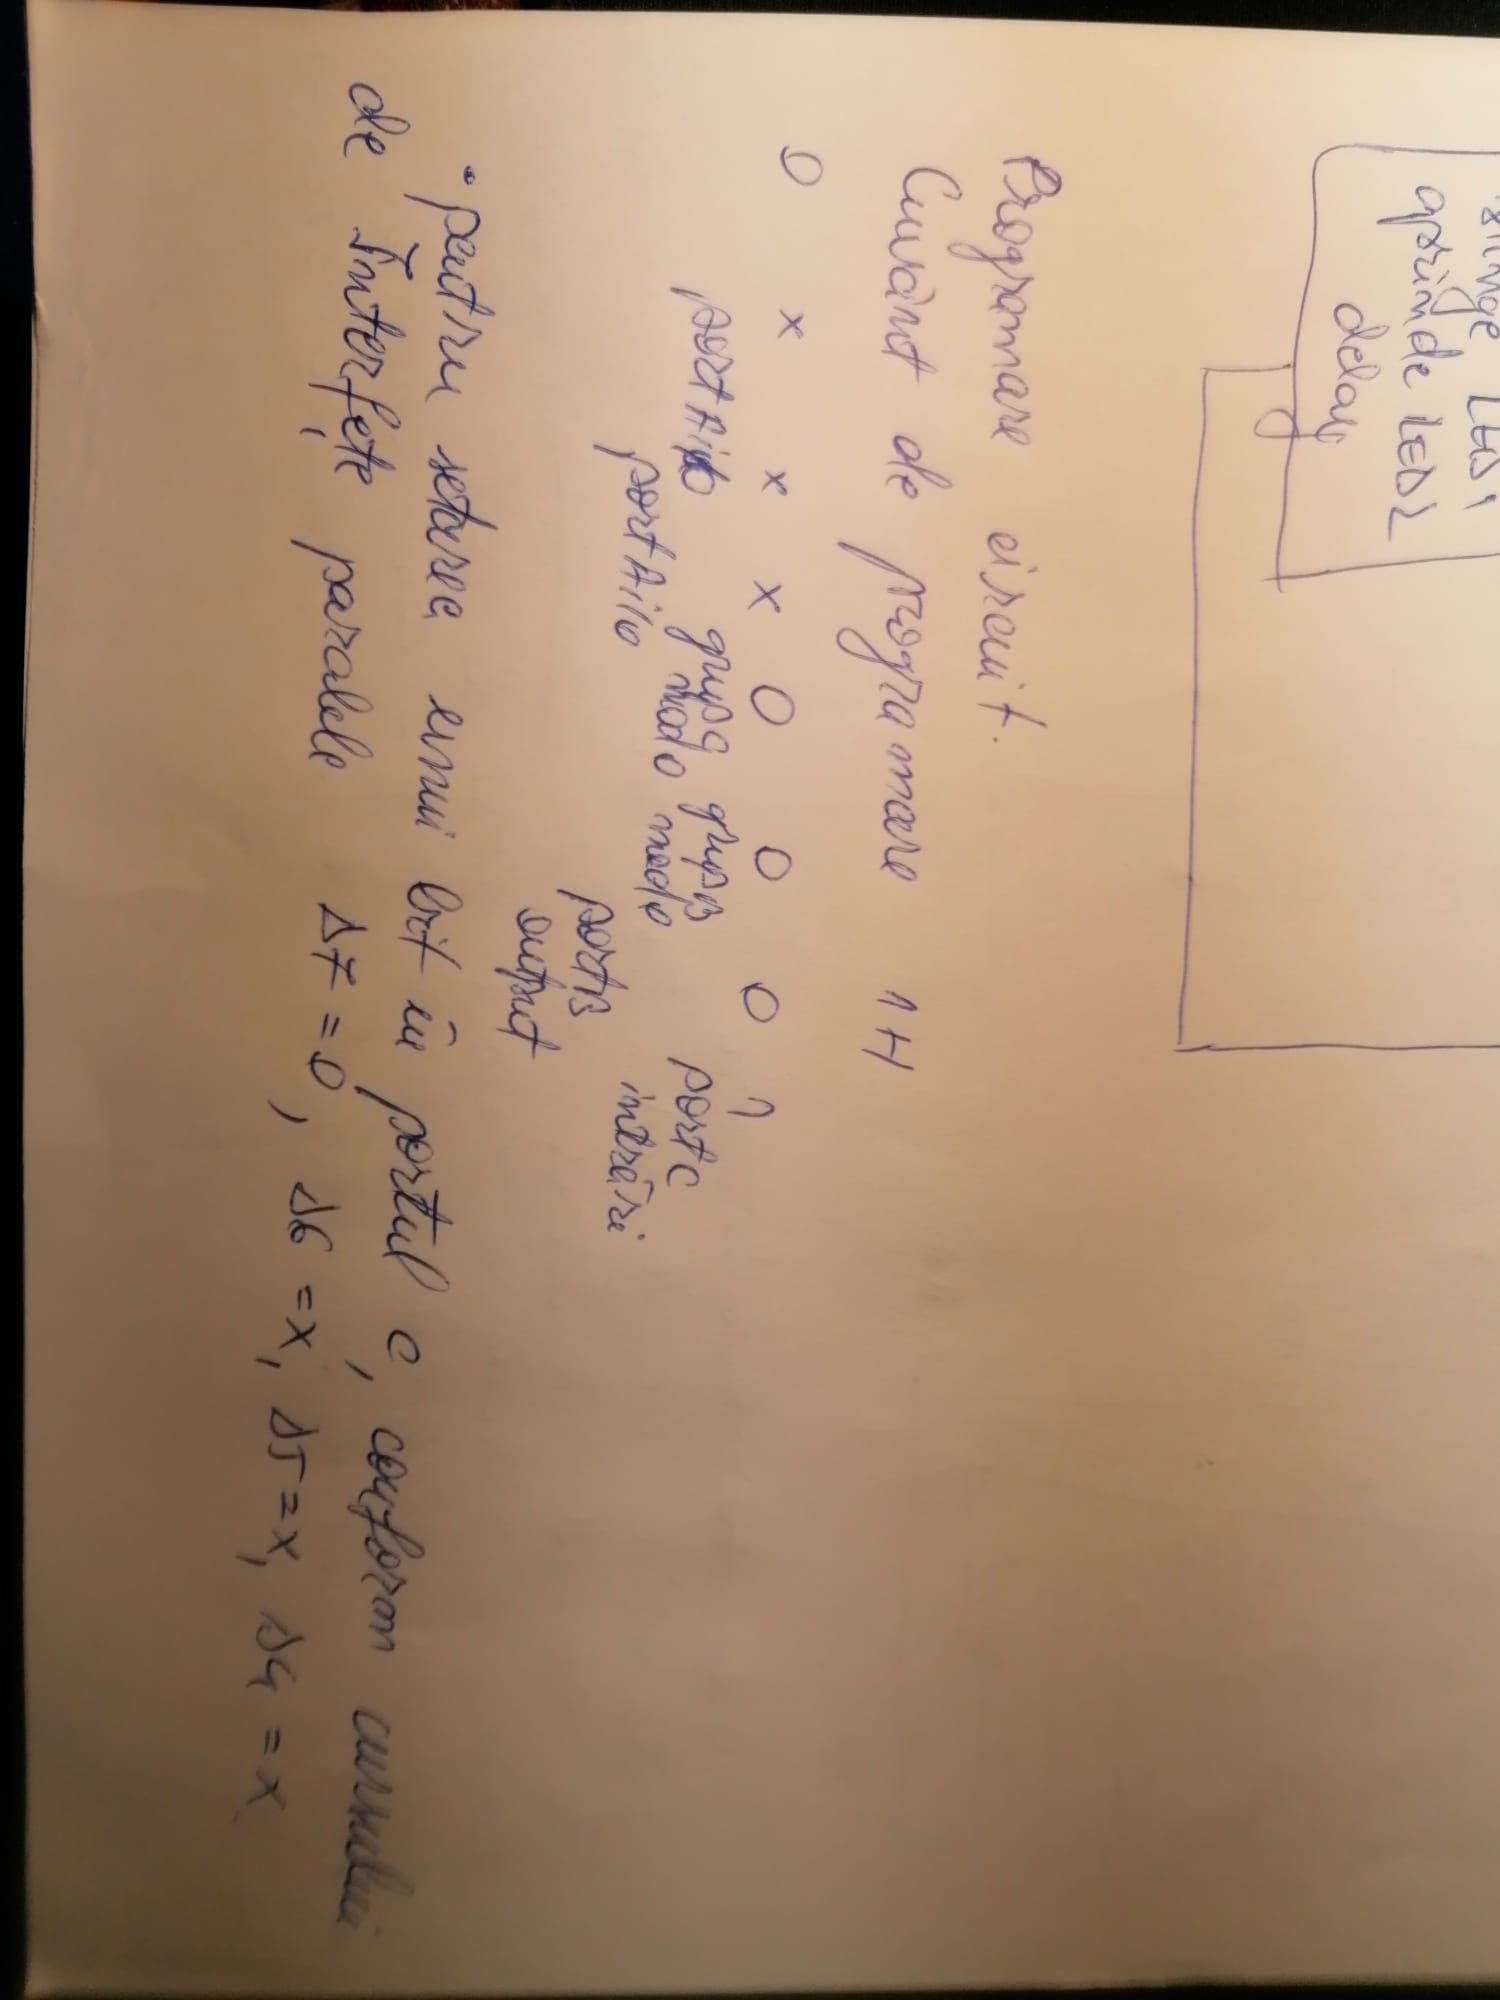 stinge LED1
aprinde LED2
delay
Programare circuit.
Cuvânt de programare 1H
0 x x x 0 0 0 1
port A i/o grup a grup B port c
port A i/o mod 0 mod 0 intrări
port B
output
• pentru setarea unui bit în portul c, conform cursului
de Interfețe paralele D7 = 0, D6 = x, D5 = x, D4 = x